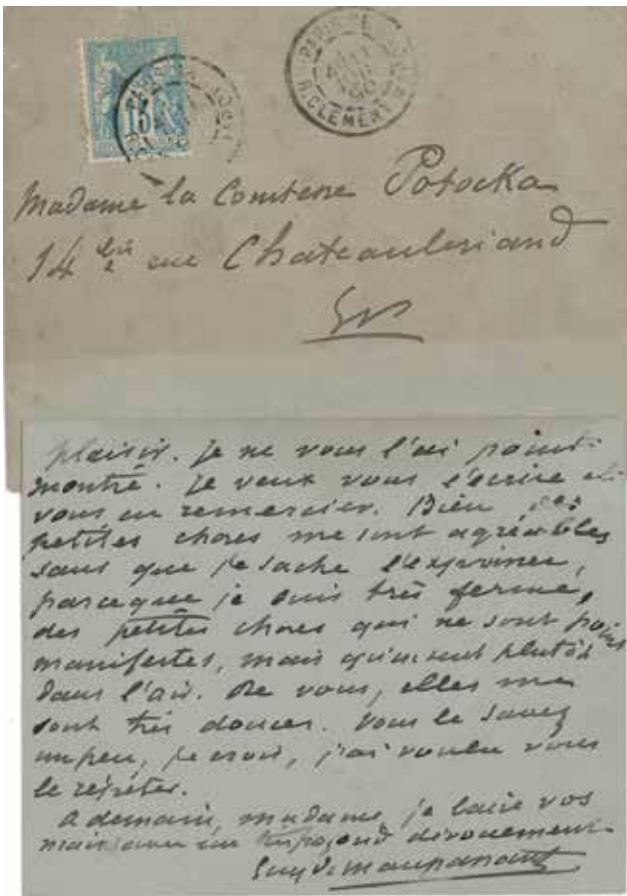 15
PARIS
R. CLÉMENT
Madame la Comtesse Potocka
14 bis rue Chateaubriand
plaisir. Je ne vous l'ai point
montré. Je veux vous l'écrire et
vous en remercier. Bien des
petites choses me sont agréables
sans que je sache l'exprimer,
parceque je suis très fermé,
des petites choses qui ne sont point
manifestes, mais qui sont plutôt
dans l'air. De vous, elles me
sont très douces. Vous le savez
un peu, je crois, j'ai voulu vous
le répéter.
A demain, madame, je baise vos
mains avec un très profond dévouement
Guy de Maupassant